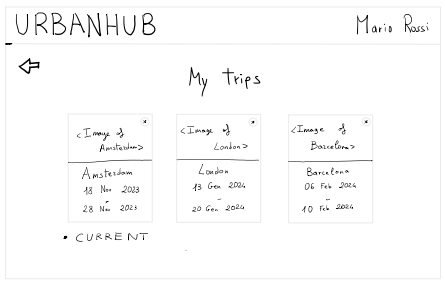 URBANHUB
Mario Rossi
My trips
<Image of
Amsterdam>
Amsterdam
18 Nov 2023
-
28 Nov 2023
• CURRENT
x
<Image of
London>
London
13 Gen 2024
-
20 Gen 2024
x
<Image of
Barcelona>
Barcelona
06 Feb 2024
-
10 Feb 2024
x